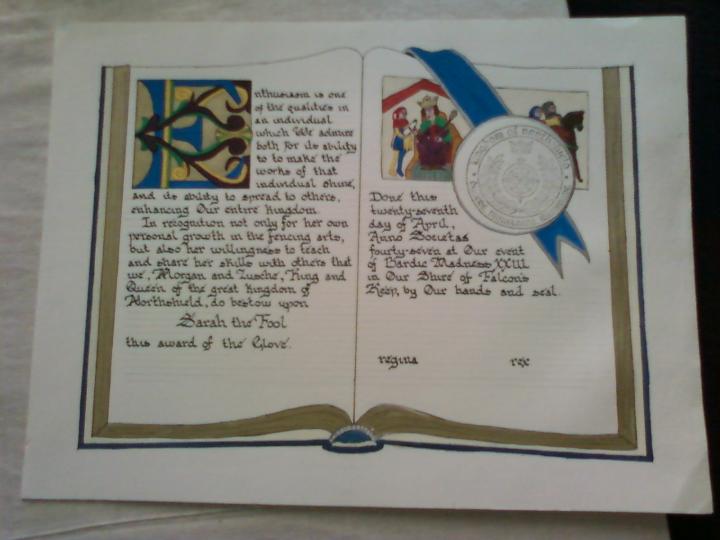 Enthusiasm is one
of the qualities in
an individual
which We admire
both for its ability
to to make the
works of that
individual shine,
and its ability to spread to others,
enhancing Our entire Kingdom.
In recognition not only for her own
personal growth in the fencing arts,
but also her willingness to teach
and share her skills with others that
we, Morgan and Zusche, King and
Queen of the great Kingdom of
Northshield, do bestow upon
Sarah the Fool
this award of the Glove.
Done this
twenty-seventh
day of April,
Anno Societas
fourty-seven at Our event
of Bardic Madness XXIII
in Our Shire of Falcon's
Keep, by Our hands and seal.
regina rex
Kingdom of Northshield